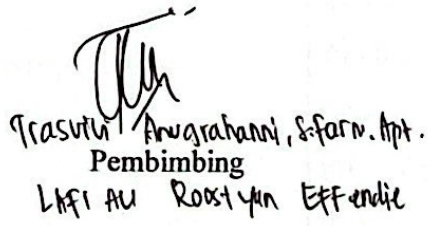 Trasuthi Anugrahanni, S.farm. Apt.
Pembimbing
LAFI AU Roostyan Effendie